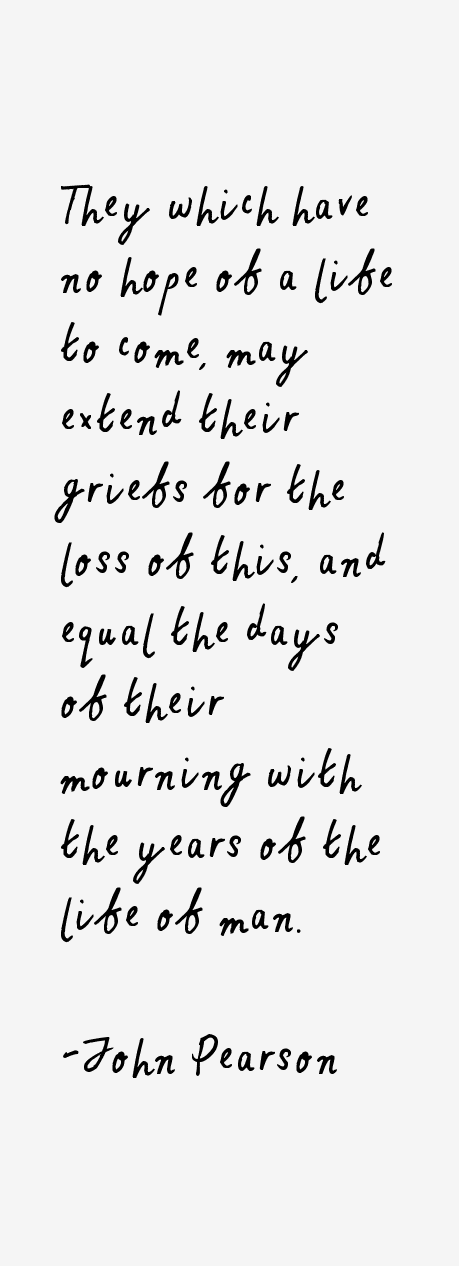 They which have
no hope of a life
to come, may
extend their
griefs for the
loss of this, and
equal the days
of their
mourning with
the years of the
life of man.
-John Pearson